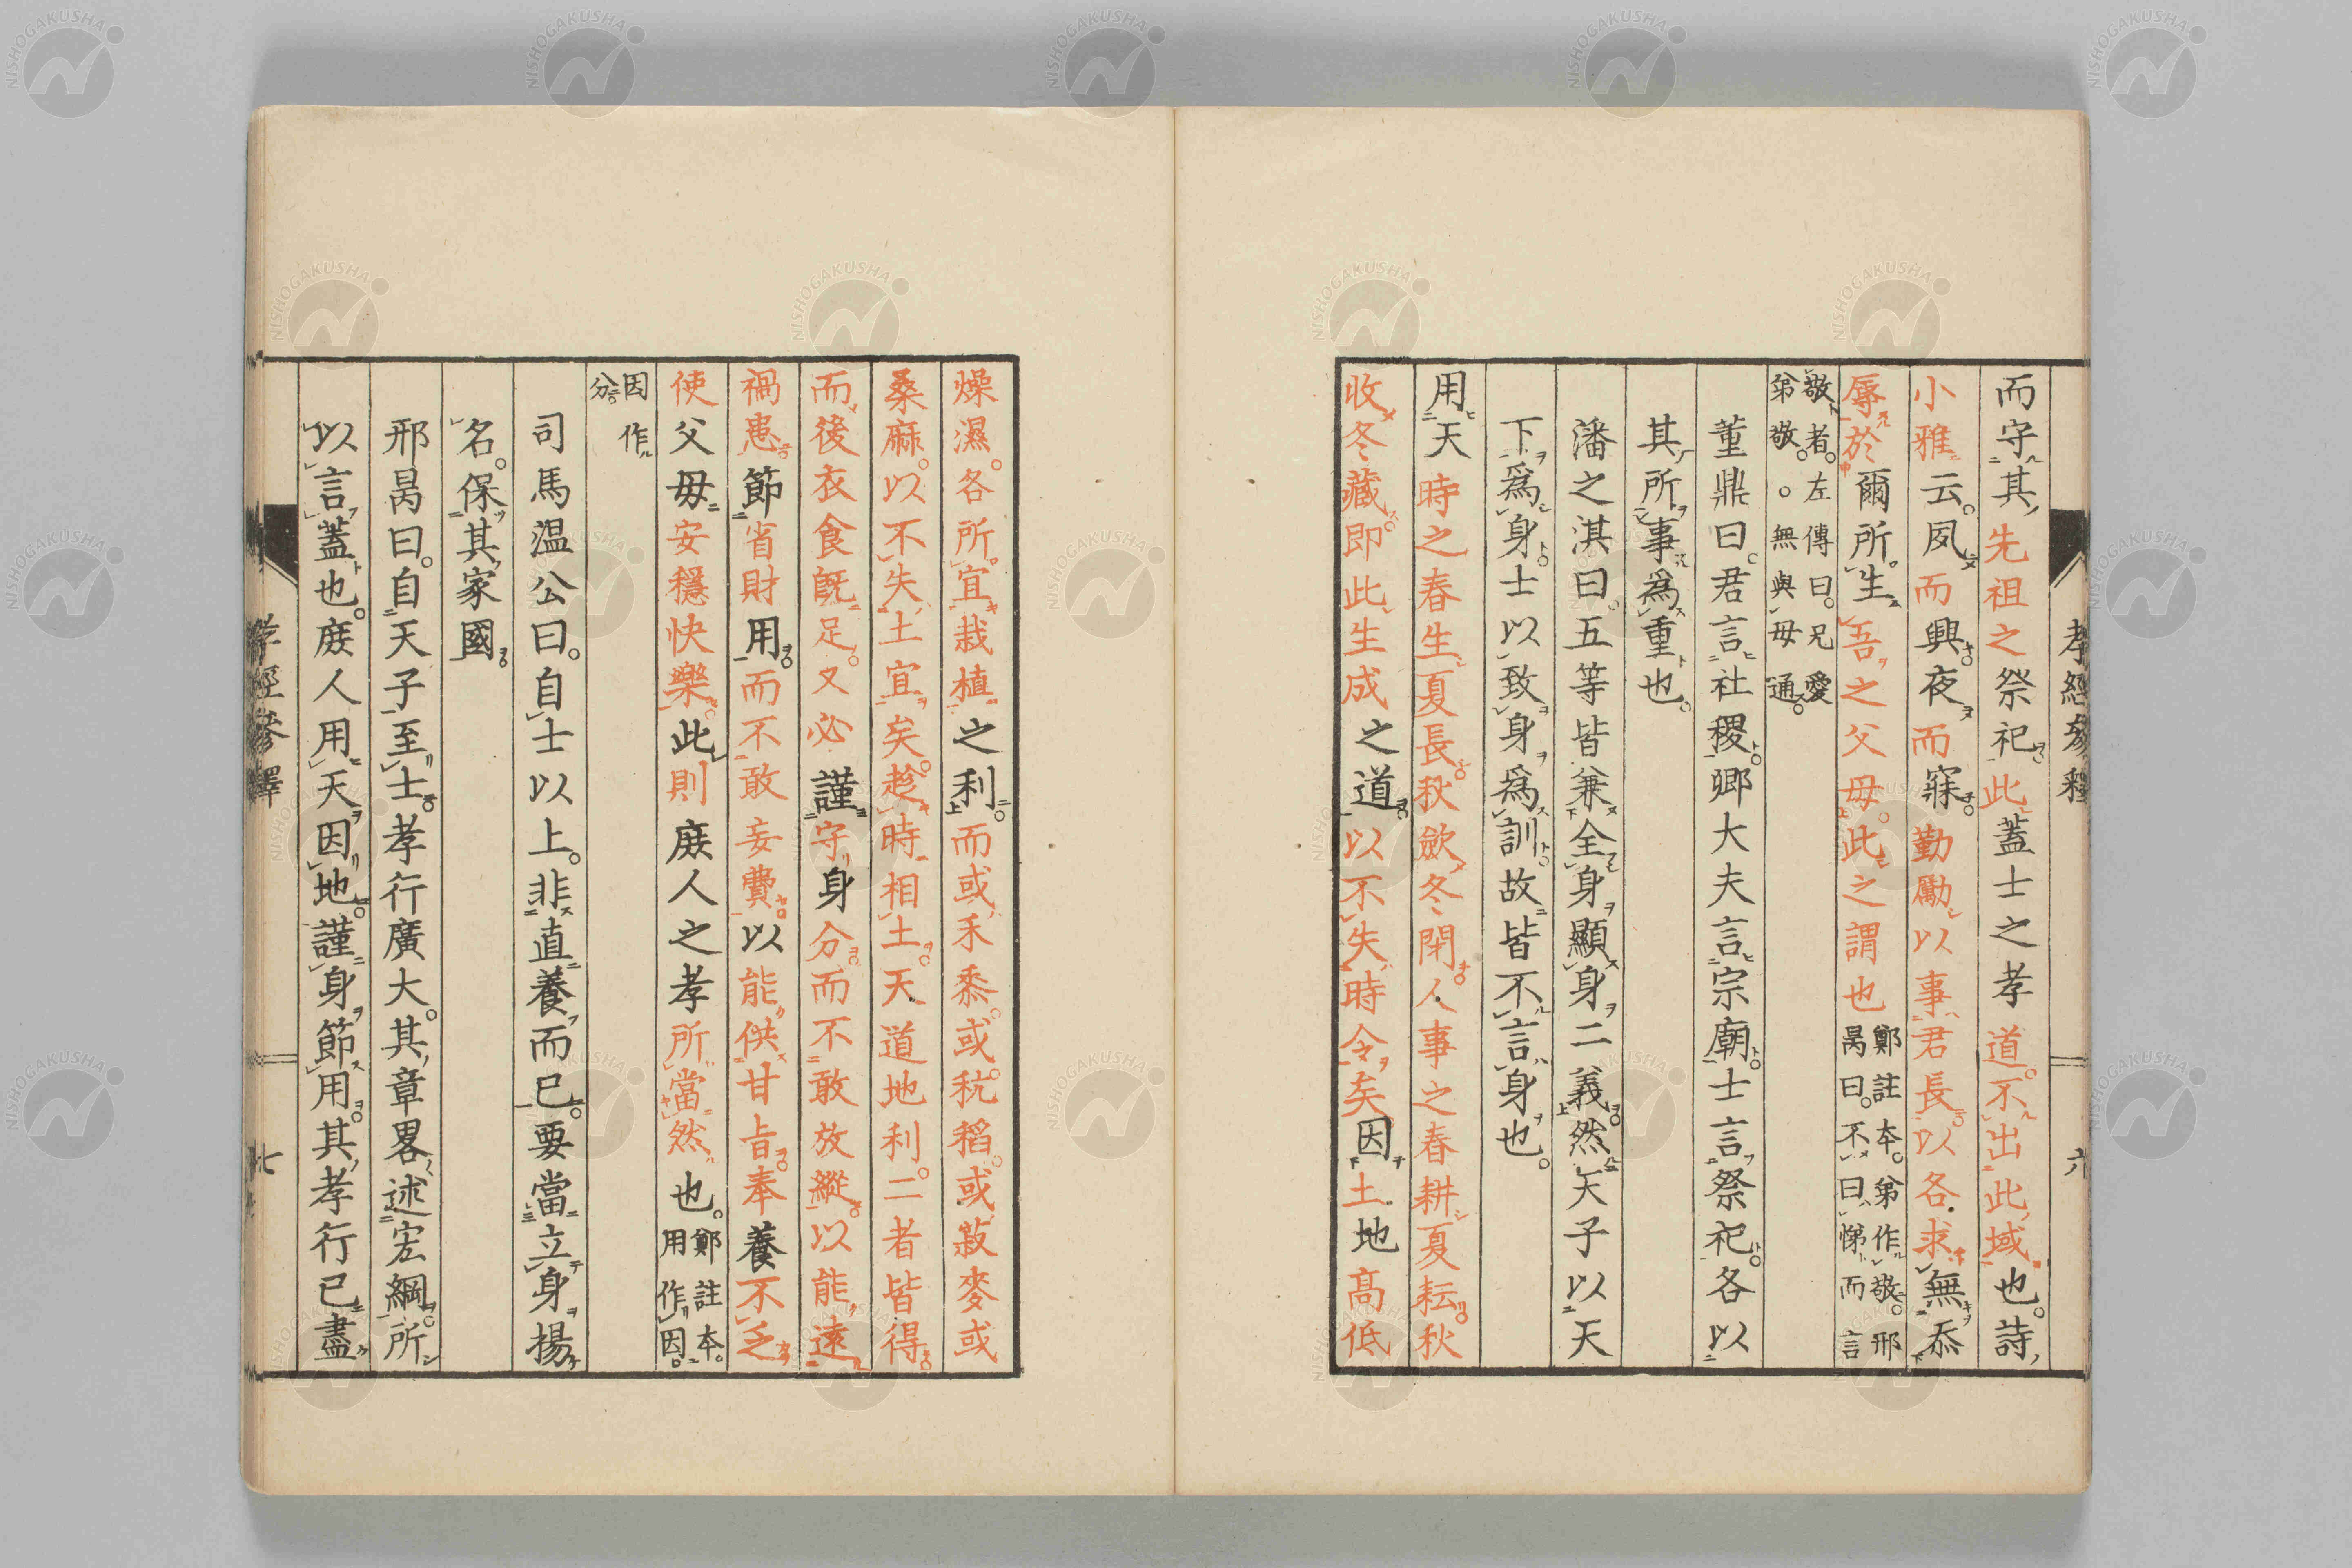 孝經參釋 六
而守其先祖之祭祀此蓋士之孝道。不出此域也。詩
小雅云。夙而興夜而寐。勤勵以事君長以各求無忝
辱於爾所生。吾之父母。此之謂也鄭註本。第作敬。邢
昺曰。不曰悌而言
敬者。左傳曰。兄愛
第敬。。無與毋通。
董鼎曰君言社稷。卿大夫言宗廟。士言祭祀。各以
其所事為重也。
潘之淇曰五等皆兼全身顯身二義。然天子以天
下為身。士以致身為訓。故皆不言身也。
用天時之春生夏長秋歛冬閉人事之春耕夏耘秋
收冬藏即此生成之道。以不失時令矣因土地高低
燥濕。各所宜栽植之利。而或禾黍。或秔稻。或菽麥或
桑麻。以不失土宜矣。趁時相土。天道地利。二者皆得
而後衣食既足。又必謹守身分而不敢放縱。以能遠
禍患。節省財用。而不敢妄費以能供甘旨奉養不乏
使父母安穩快樂。此則庶人之孝所當然也。鄭註本。
用作因。
因作
分。
司馬温公曰。自士以上。非直養而已。要當立身揚
名。保其家國。
邢昺曰。自天子至士。孝行廣大。其章畧述宏綱。所
以言蓋也。庶人用天因地。謹身節用。其孝行已盡
孝經參釋 七
NISHOGAKUSHA